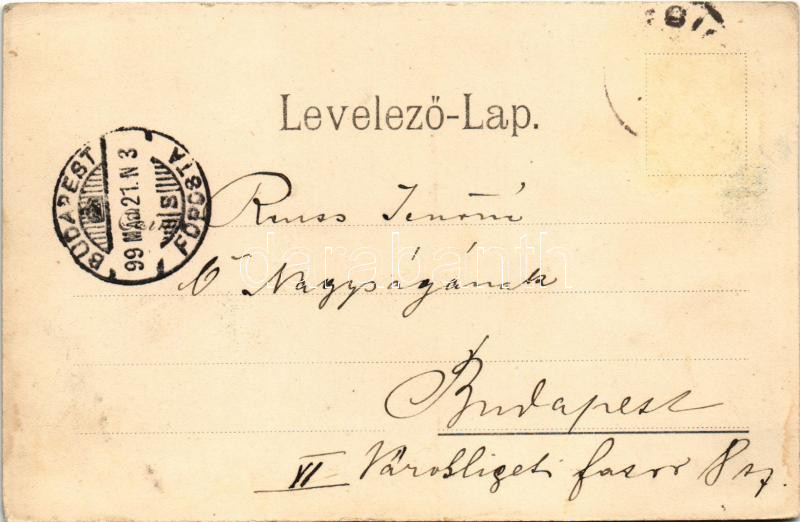 Levelező-Lap.
BUDAPEST FŐPOSTA
99 MÁJ 21. N 3
Reuss Jenőné
Ő Nagyságának
Budapest
VI Városligeti fasor 8 sz.
darabanth